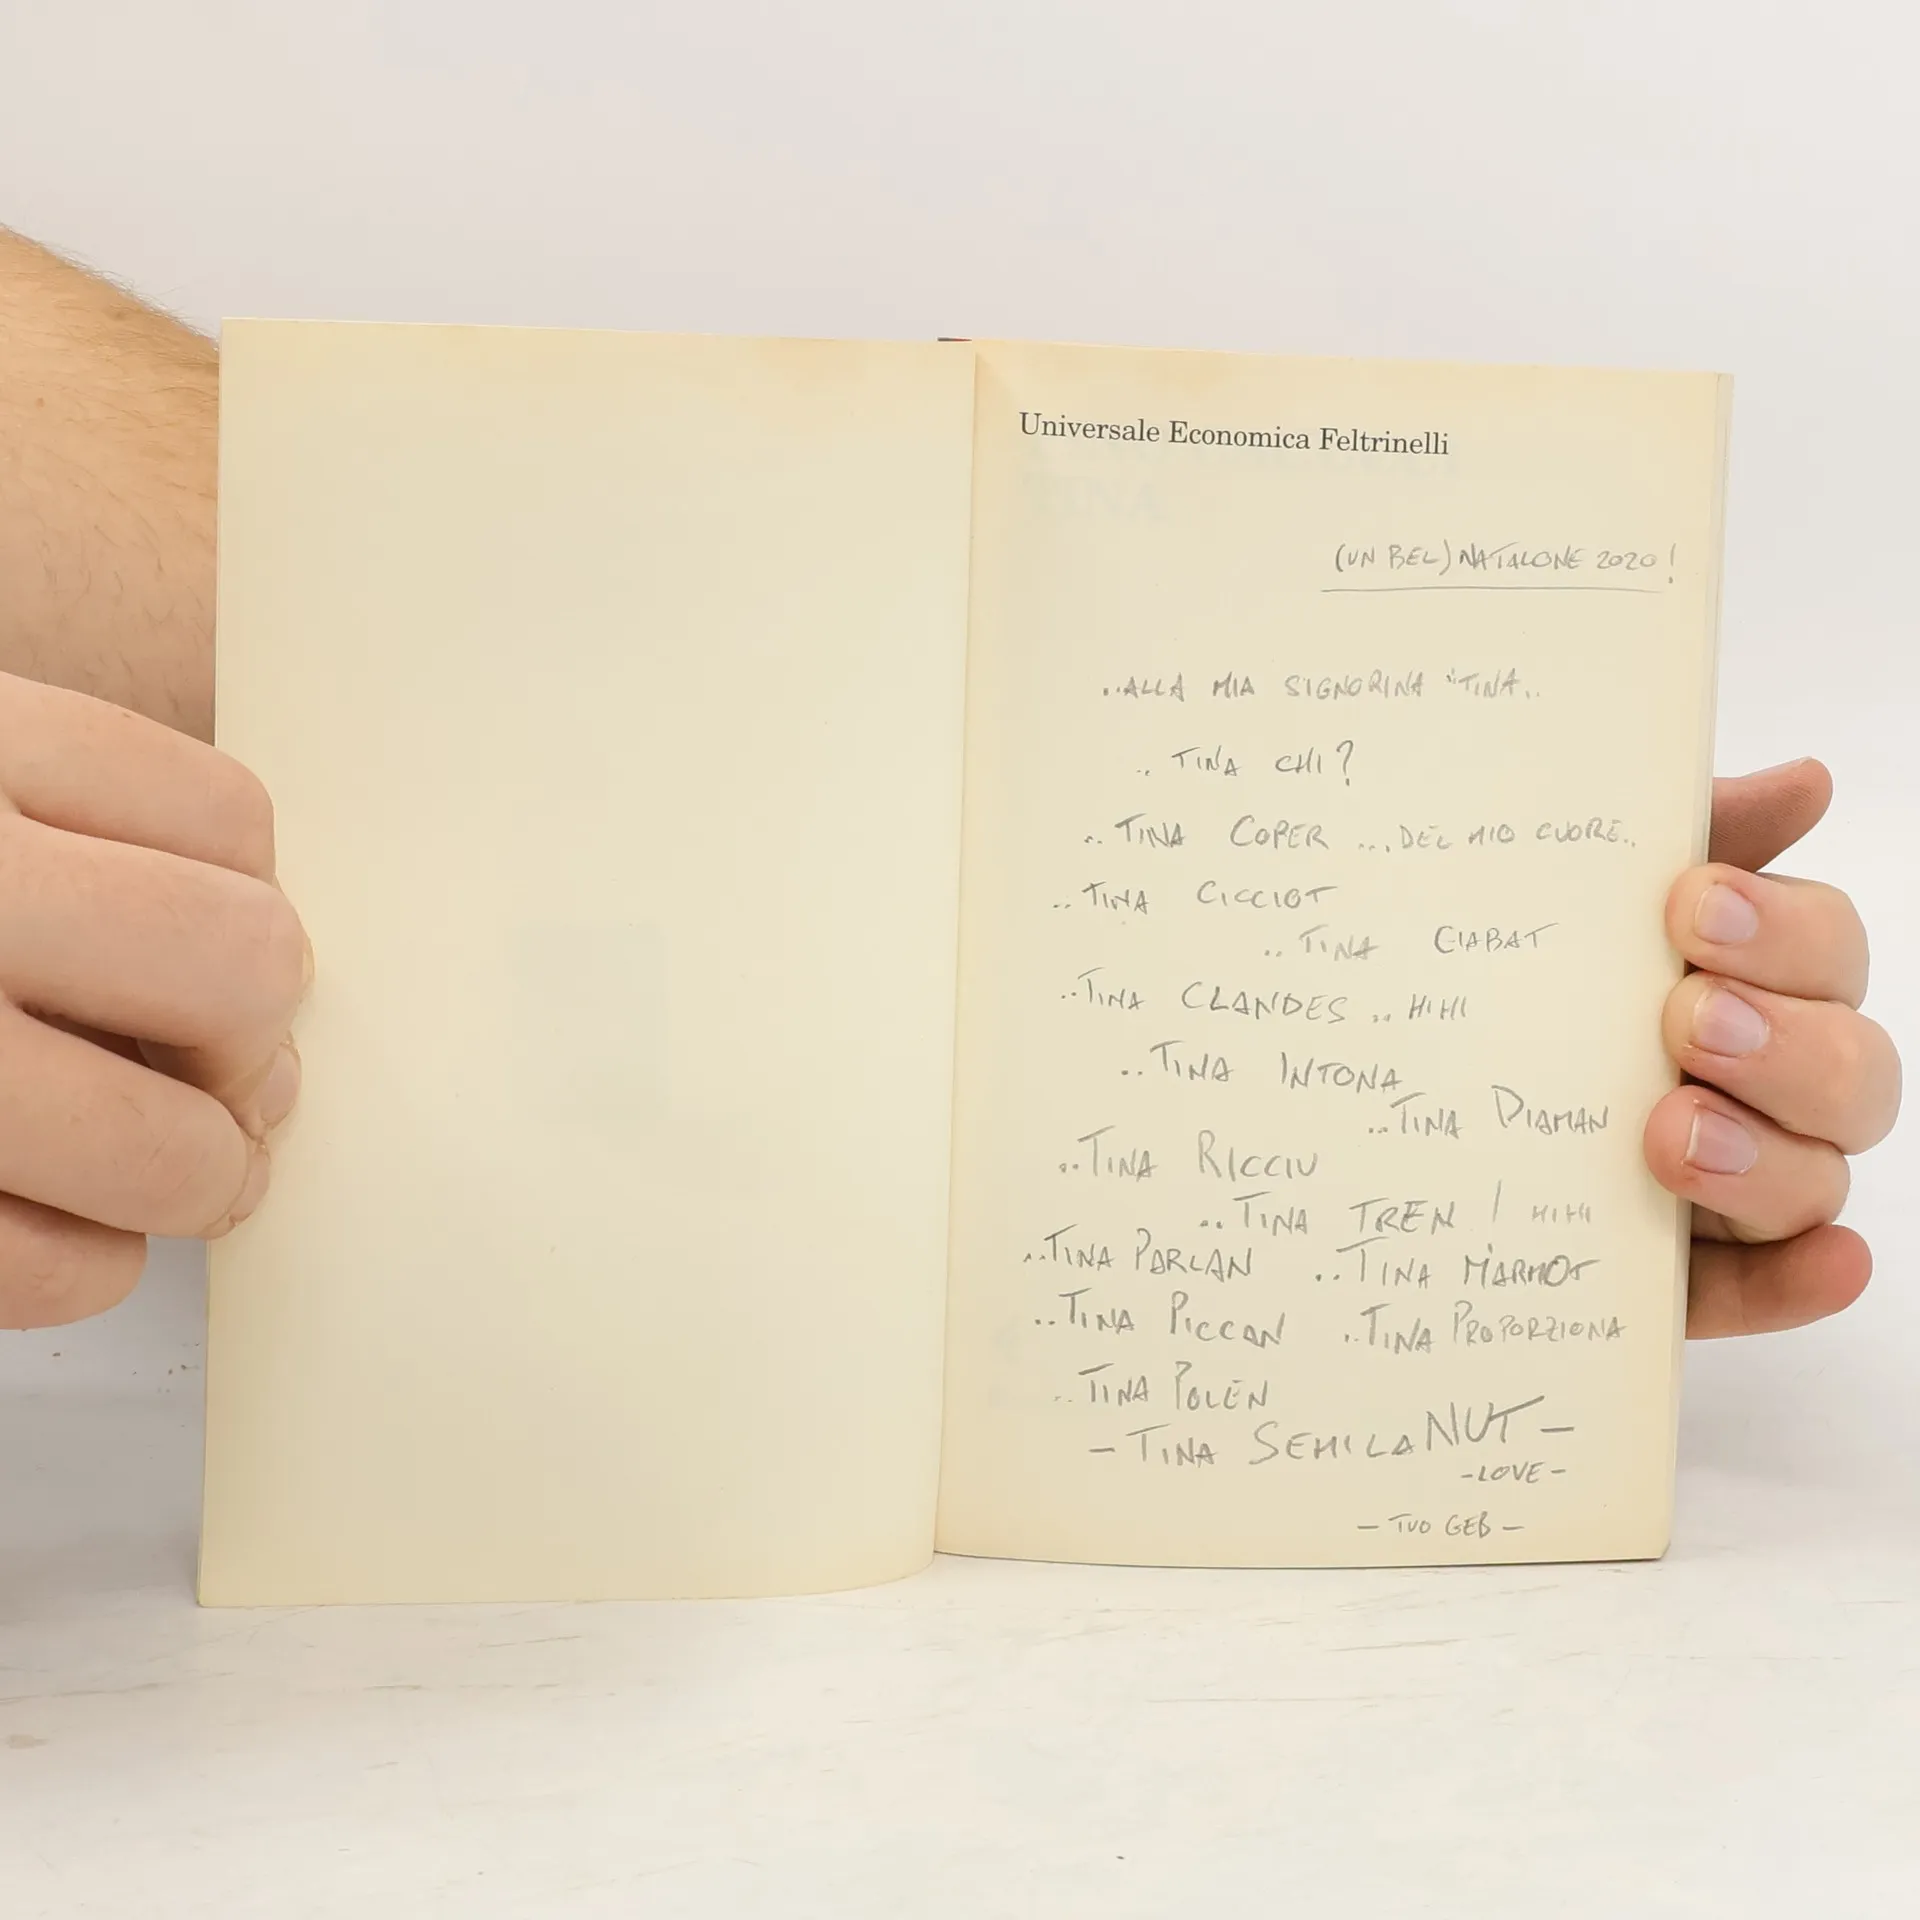 Universale Economica Feltrinelli
(UN BEL) NATALONE 2020!
..ALLA MIA SIGNORINA "TINA..
.. TINA CHI?
.. TINA COPER ....DEL MIO CUORE..
.. TINA CICCIOT
.. TINA CIABAT
..TINA CLANDES .. HIHI
..TINA INTONA
..TINA DIAMAN
..TINA RICCIU
..TINA TREN ! HIHI
..TINA PARLAN ..TINA MARMOT
..TINA PICCAN ..TINA PROPORZIONA
..TINA POLEN
- TINA SEMILANUT -
-LOVE-
- TUO GEB -